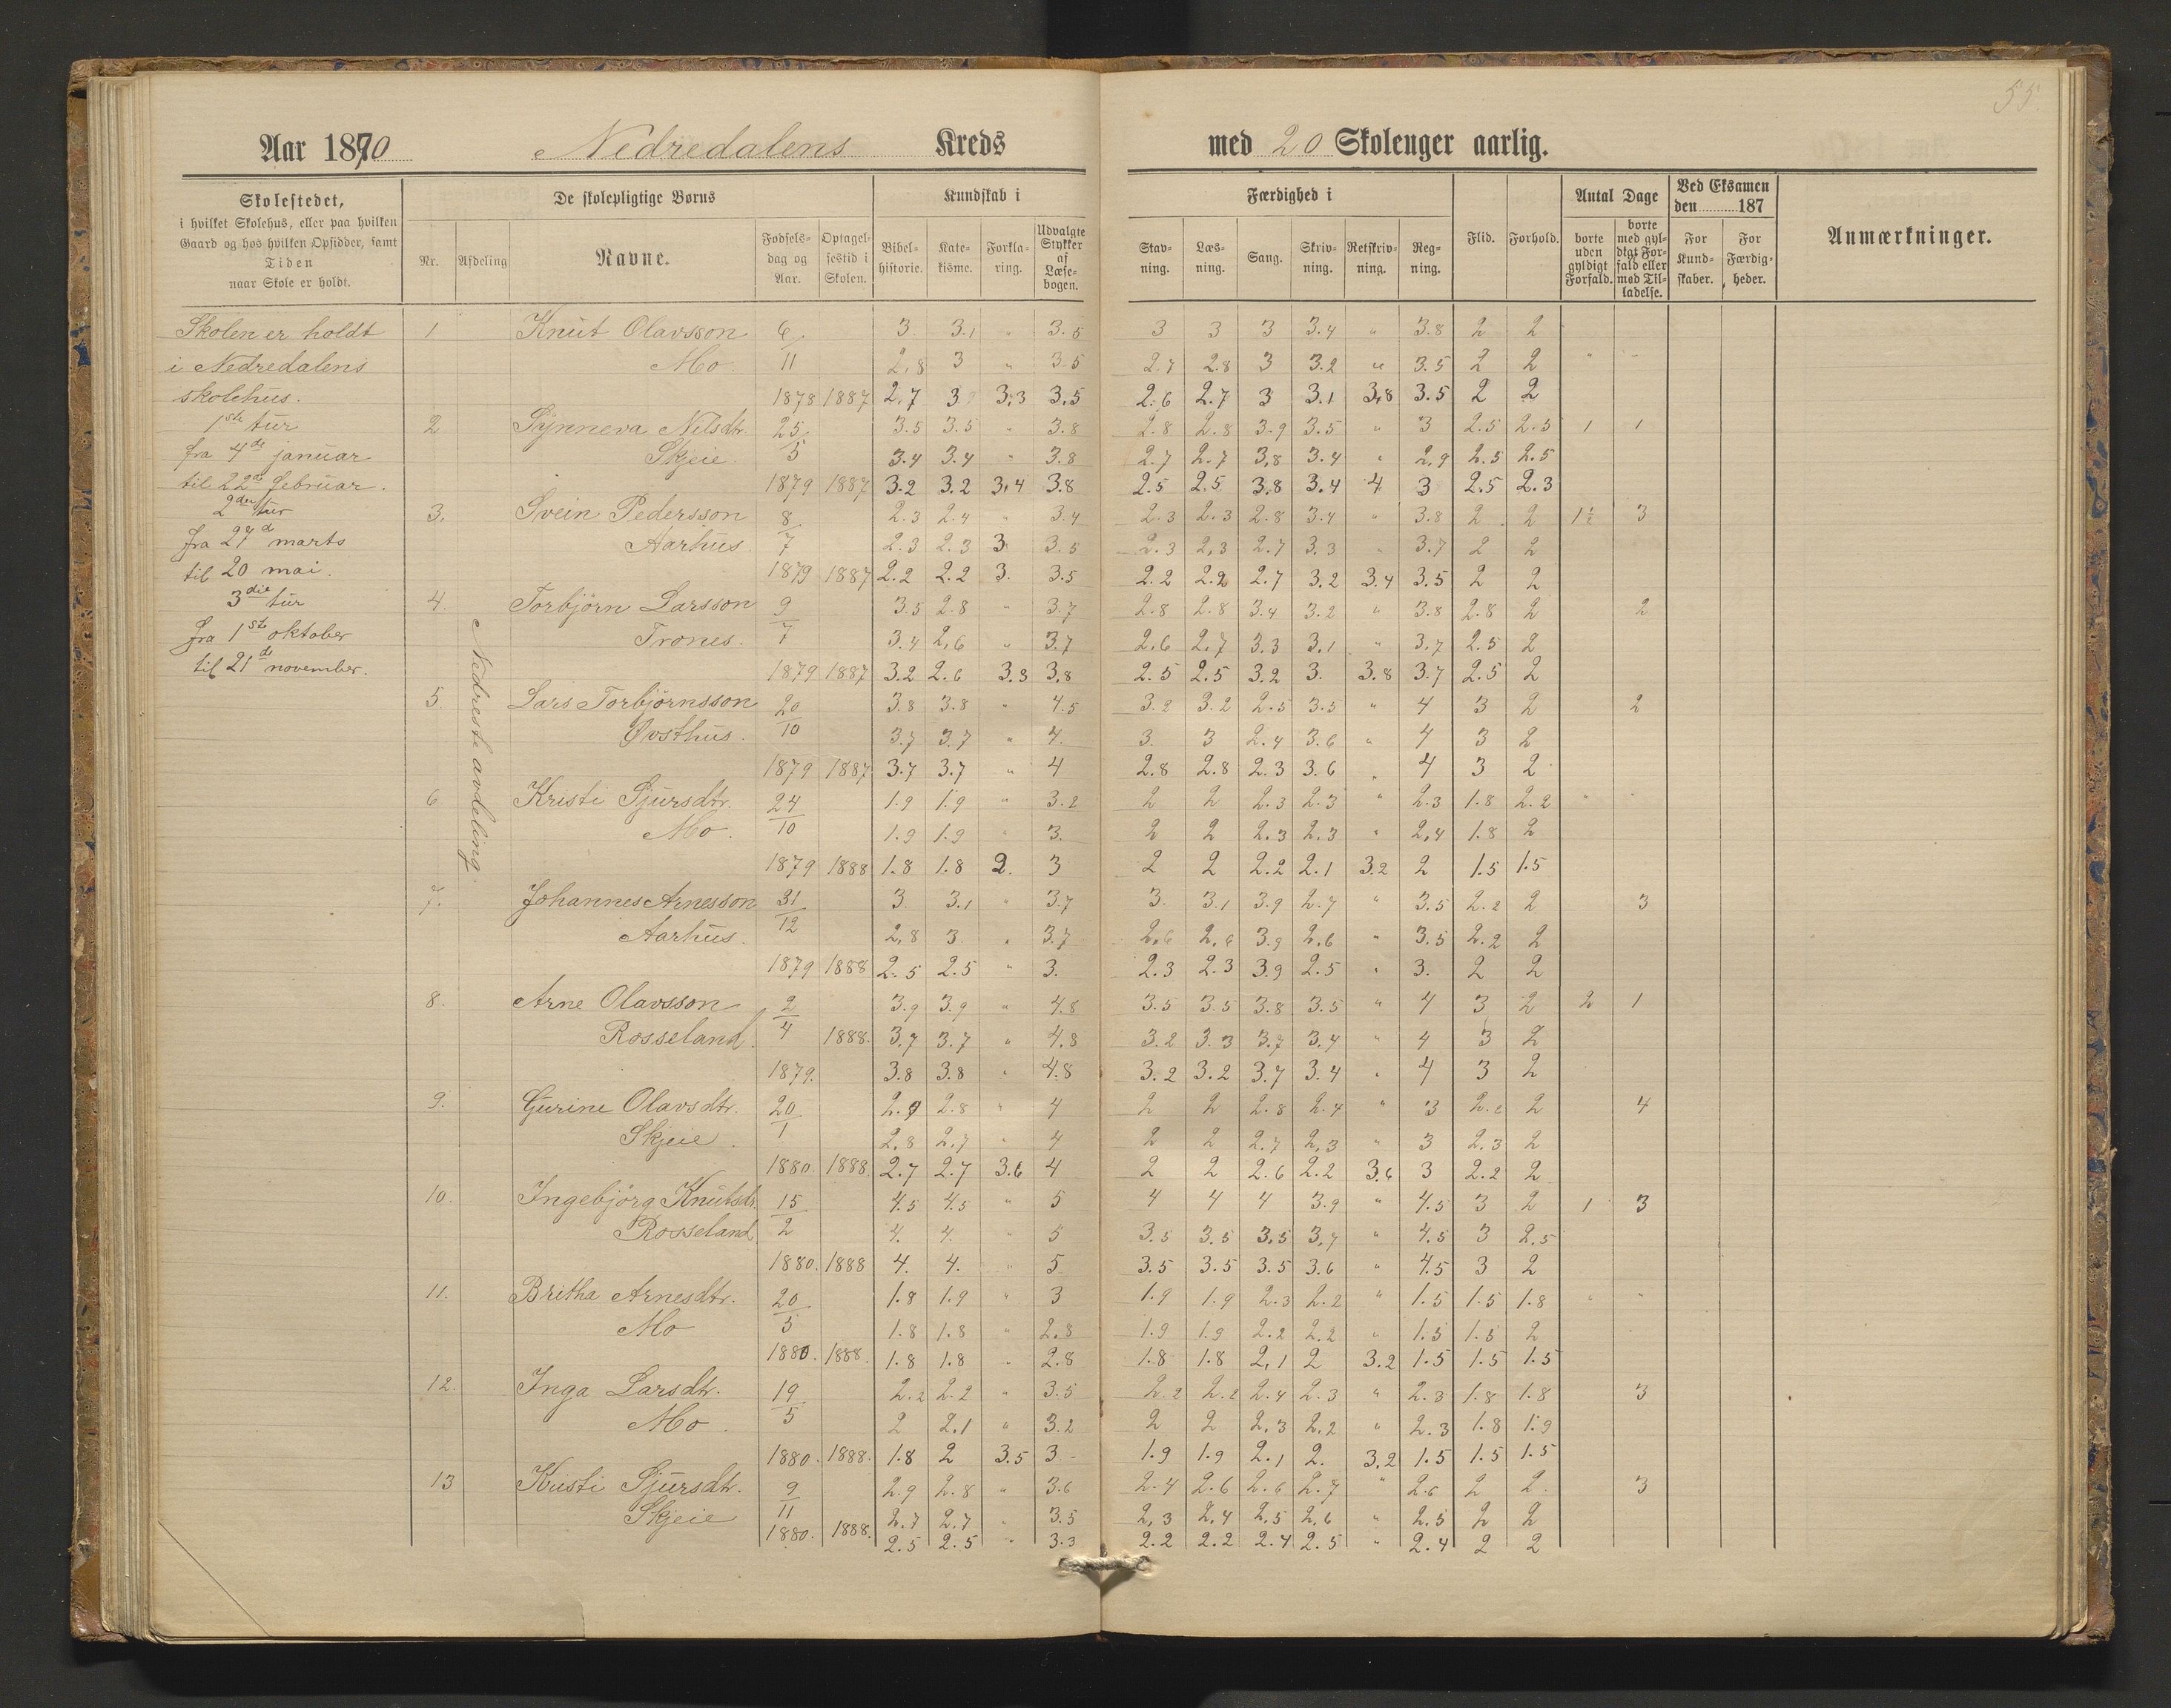 55.
Aar 1890 Nedredalens Kreds med 20 Skoleuger aarlig.
Skolestedet,
i hvilket Skolehus, eller paa hvilken
Gaard og hos hvilken Opsidder, samt
Tiden
naar Skole er holdt.
De skolepligtige Børns
Nr. Afdeling Navne. Fødselsdag og Aar. Optagelsestid i Skolen.
Kundskab i
Bibelhistorie. Katekisme. Forklaring. Udvalgte Stykker af Læsebogen.
Færdighed i
Stavning. Læsning. Sang. Skrivning. Retskrivning. Regning.
Flid. Forhold.
Antal Dage
borte uden gyldigt Forfald. borte med gyldigt Forfald eller med Tilladelse.
Ved Eksamen
den 187
For Kundskaber. For Færdigheder.
Anmærkninger.
Skolen er holdt
i Nedredalens
skolehus.
1ste tur
fra 4de januar
til 22de februar.
2den tur
fra 27d marts
til 20 mai.
3die tur
fra 1ste oktober
til 21de november.
Nedreste avdeling.
1 Knut Olavsson 6 3 3.1 " 3.5 3 3 3 3.4 " 3.8 2 2
Mo 11 2,8 3 " 3.5 2.7 2.8 3 3.2 " 3.5 2 2 " "
1878 1887 2,7 3 3,3 3,5 2.6 2.7 3 3.1 3,8 3.5 2 2
2 Synneva Nilsdtr. 25 3.5 3.5 " 3.8 2.8 2.8 3.9 3.5 " 3 2.5 2.5 1 1
Skjeie 5 3.4 3.4 " 3.8 2.7 2.7 3,8 3.4 " 2,9 2.5 2.5
1879 1887 3.2 3.2 3,4 3.8 2.5 2.5 3.8 3.4 4 3 2.5 2.3
3. Svein Pedersson 8 2.3 2.4 " 3.4 2.3 2.3 2.8 3.4 " 3.8 2 2 1½ 3
Aarhus. 7 2.3 2.3 3 3.5 2.3 2,3 2.7 3.3 " 3.7 2 2
1879 1887 2.2 2.2 3. 3.5 2.2 2.2 2.7 3.2 3.4 3.5 2 2
4. Torbjörn Larsson 9 3.5 2.8 " 3.7 2.8 2.8 3.4 3.2 " 3.8 2.8 2 2
Trones. 7 3.4 2,6 " 3.7 2,6 2,7 3.3 3,1 " 3.7 2.5 2
1879 1887 3.2 2.6 3.3 3,8 2.5 2,5 3.2 3. 3.8 3.7 2.5 2
5. Lars Torbjörnsson 20 3.8 3.8 " 4.5 3.2 3.2 2.5 3.5 " 4 3 2 2
Øvsthus. 10 3.7 3.7 " 4. 3. 3 2.4 3.6 " 4 3 2
1879 1887 3.7 3.7 " 4 2.8 2.8 2.3 3.6 " 4 3 2
6. Kristi Sjursdtr. 24 1.9 1.9 " 3.2 2 2 2.3 2.3 " 2.3 1.8 2.2 " "
Mo. 10 1.9 1.9 " 3. 2 2 2.3 2.3 " 2,4 1.8 2
1879 1888 1.8 1.8 2. 3 2 2 2.2 2.1 3.2 2 1.5 1.5
7. Johannes Arnesson 31 3. 3.1 " 3.7 3. 3.1 3.9 2.7 " 3.5 2.2 2 3
Aarhus. 12 2,8 3 " 3.7 2,6 2,6 3.9 2,6 " 3.5 2.2 2
1879 1888 2.5 2.5 " 3. 2.3 2.3 3.9 2.5 " 3. 2 2
8. Arne Olavsson 2 3.9 3.9 " 4.8 3.5 3.5 3.8 3.5 " 4 3 2 2 1
Rosseland. 4 1888. 3.7 3.7 " 4.8 3.2 3.3 3.7 3.4 " 4 3 2
1879. 3.8 3.8 " 4.8 3.2 3.2 3.7 3.4 " 4 3 2
9. Gurine Olavsdtr. 20 2.9 2.8 " 4 2 2 2.8 2.4 " 3 2.2 2 4
Skjeie. 1 2,8 2,7 " 4 2 2 2.7 2,3 " 3 2.3 2
1880. 1888 2.7 2.7 3.6 4 2 2 2.6 2.2 3.6 3 2.2 2
10. Ingebjörg Knutsdr. 15 4.5 4.5 " 5 4 4 4 3.9 " 4.5 3 2 1 3
Rosseland 2 4. 4. " 5 3.5 3.5 3,5 3,7 " 4.5 3 2.5
1880. 1888 4. 4. " 5 3.5 3.5 3.5 3.6 " 4.5 3 2
11. Britha Arnesdtr. 20 1.8 1.9 " 3 1.9 1.9 2.3 2.2 " 1.5 1.5 1.8 " "
Mo 5 1.8 1.8 " 2,8 1.9 1.9 2.2 2.2 " 1.5 1.5 2
1880. 1888. 1.8 1.8 " 2.8 1.8 1.8 2,1 2 3.2 1.5 1.5 1.5
12. Inga Larsdtr. 19 2.2 2.2 " 3.5 2.2 2.2 2.4 2.3 " 2.3 1.8 1.8 3
Mo. 5 2 2,1 " 3.2 2 2 2,3 2,2 " 2.3 1.8 1.9
1880. 1888. 1.8 2 3.5 3 1.9 1.9 2.1 2. 3.2 1.5 1.5 1.5
13 Kristi Sjursdtr. 9 2.9 2.8 " 3.6 2.4 2.6 2.6 2.7 " 2.6 2 2. 3
Skjeie 11 2.7 2.7 " 3.5 2,3 2,4 2.5 2,6 " 2.5 2 2
1880. 1888. 2.5 2.5 " 3.3 2.2 2.2 2.4 2.5 " 2.4 2 2